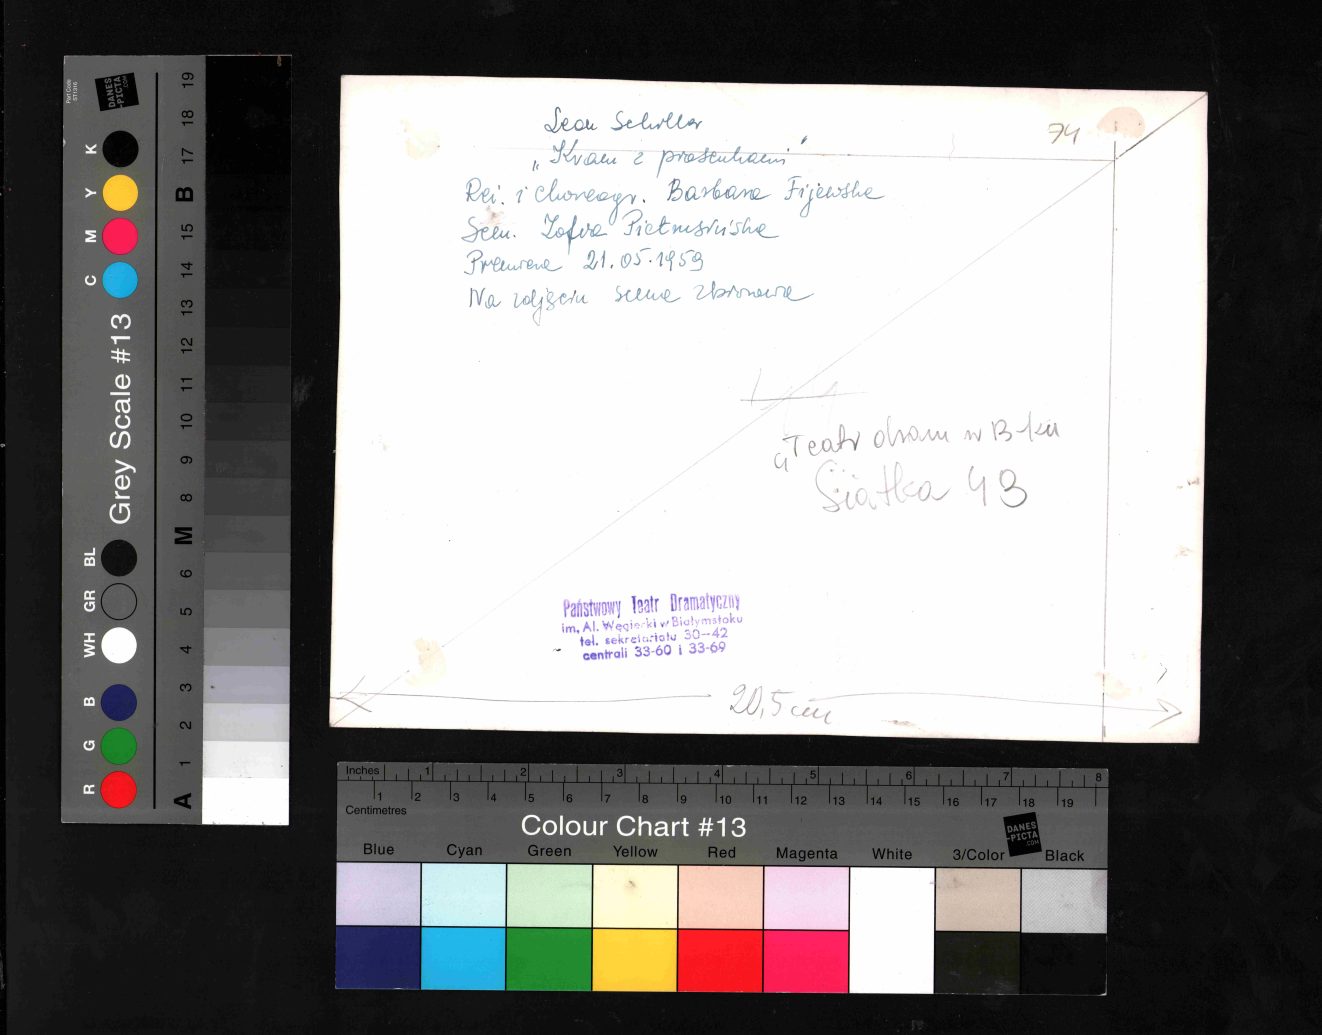 Leon Schiller
„Kram z piosenkami"
Reż. i choreogr. Barbara Fijewska
Scen. Zofia Pietrusińska
Premiera 21.05.1959
Na zdjęciu scena zbiorowa
74
„Teatr dram w B-ku
Siatka 43
Państwowy Teatr Dramatyczny
im. Al. Węgierki w Białymstoku
tel. sekretariatu 30-42
centrali 33-60 i 33-69
20,5 cm
Part Code ST1316
DANES
-PICTA
.COM
Grey Scale #13
K
Y
M
C
BL
GR
WH
B
G
R
19
18
17
B
15
14
13
12
11
10
9
8
M
6
5
4
3
2
1
A
Inches 1 2 3 4 5 6 7 8
1 2 3 4 5 6 7 8 9 10 11 12 13 14 15 16 17 18 19
Centimetres
Colour Chart #13
DANES
-PICTA
.COM
Blue Cyan Green Yellow Red Magenta White 3/Color Black